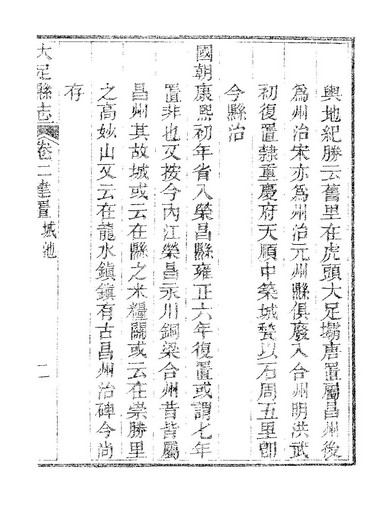 輿地紀勝云舊里在虎頭大足壩唐置屬昌州後
為州治宋亦為州治元州縣俱廢入合州明洪武
初復置隸重慶府天順中築城甃以石周五里卽
今縣治
國朝康熙初年省入榮昌縣雍正六年復置或謂七年
置非也又按今內江榮昌永川銅梁合州昔皆屬
昌州其故城或云在縣之米糧關或云在崇勝里
之高妙山又云在龍水鎮鎮有古昌州治碑今尚
存
大足縣志 卷二 建置 城池 二